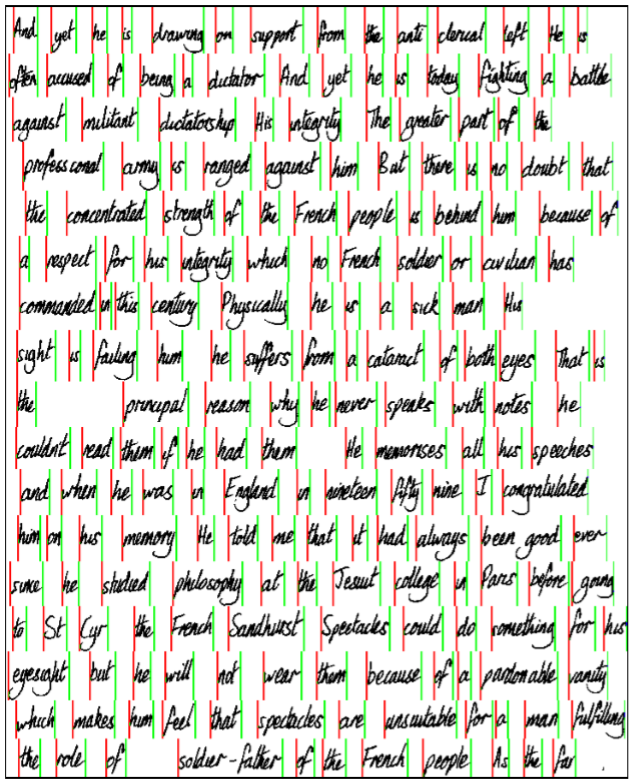 And yet he is drawing on support from the anti clerical left He is
often accused of being a dictator And yet he is today fighting a battle
against militant dictatorship His integrity The greater part of the
professional army is ranged against him But there is no doubt that
the concentrated strength of the French people is behind him because of
a respect for his integrity which no French soldier or civilian has
commanded in this century Physically he is a sick man His
sight is failing him he suffers from a cataract of both eyes That is
the principal reason why he never speaks with notes he
couldn't read them if he had them He memorises all his speeches
and when he was in England in nineteen fifty nine I congratulated
him on his memory He told me that it had always been good ever
since he studied philosophy at the Jesuit college in Paris before going
to St Cyr the French Sandhurst Spectacles could do something for his
eyesight but he will not wear them because of a pardonable vanity
which makes him feel that spectacles are unsuitable for a man fulfilling
the role of soldier-father of the French people As the far